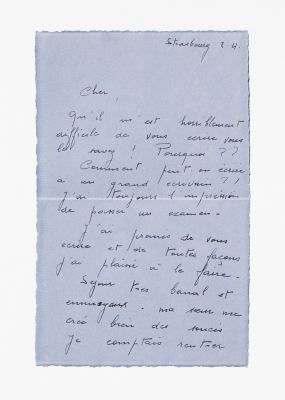 Strasbourg 2.4.
Cher,
Qu'il m'est horriblement
difficile de vous ecrire vous
le savez ! Pourquoi ??
Comment peut on ecrire
a un grand ecrivain ?!
J'ai toujours l'impression
de passer un examen.
J'ai promis de vous
ecrire et de toutes façons
j'ai plaisir à le faire.
Sejour tres banal et
ennuyeux. ma sœur me
créé bien des soucis
je comptais rentrer